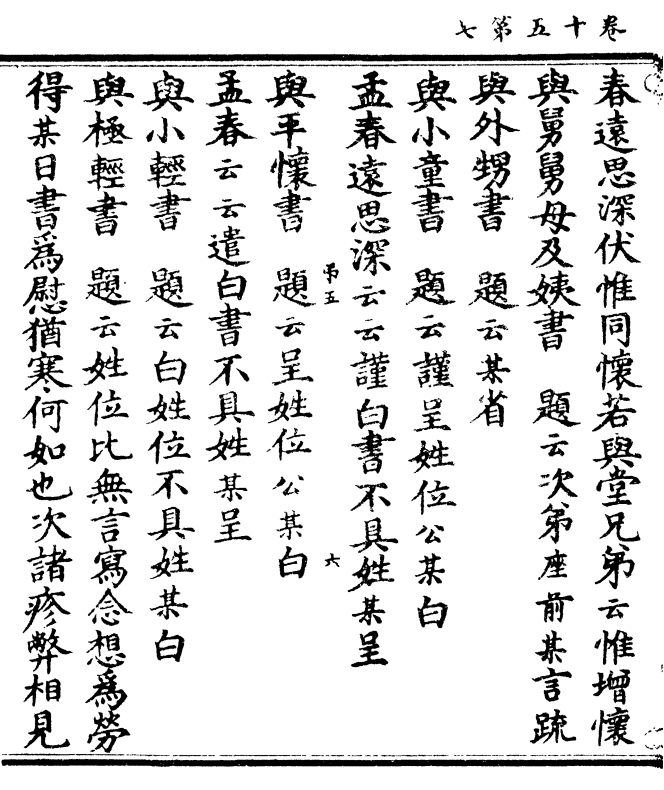 卷十五第七
春遠思深伏惟同懷若與堂兄弟云惟增懷
與舅舅母及姨書　題云次第座前某言疏
與外甥書　題云某省
與小童書　題云謹呈姓位公某白
孟春遠思深云云謹白書不具姓某呈
第五　六
與平懷書　題云呈姓位公某白
孟春云云遣白書不具姓某呈
與小輕書　題云白姓位不具姓某白
與極輕書　題云姓位比無言寫念想為勞
得某日書為慰猶寒何如也次諸疹弊相見